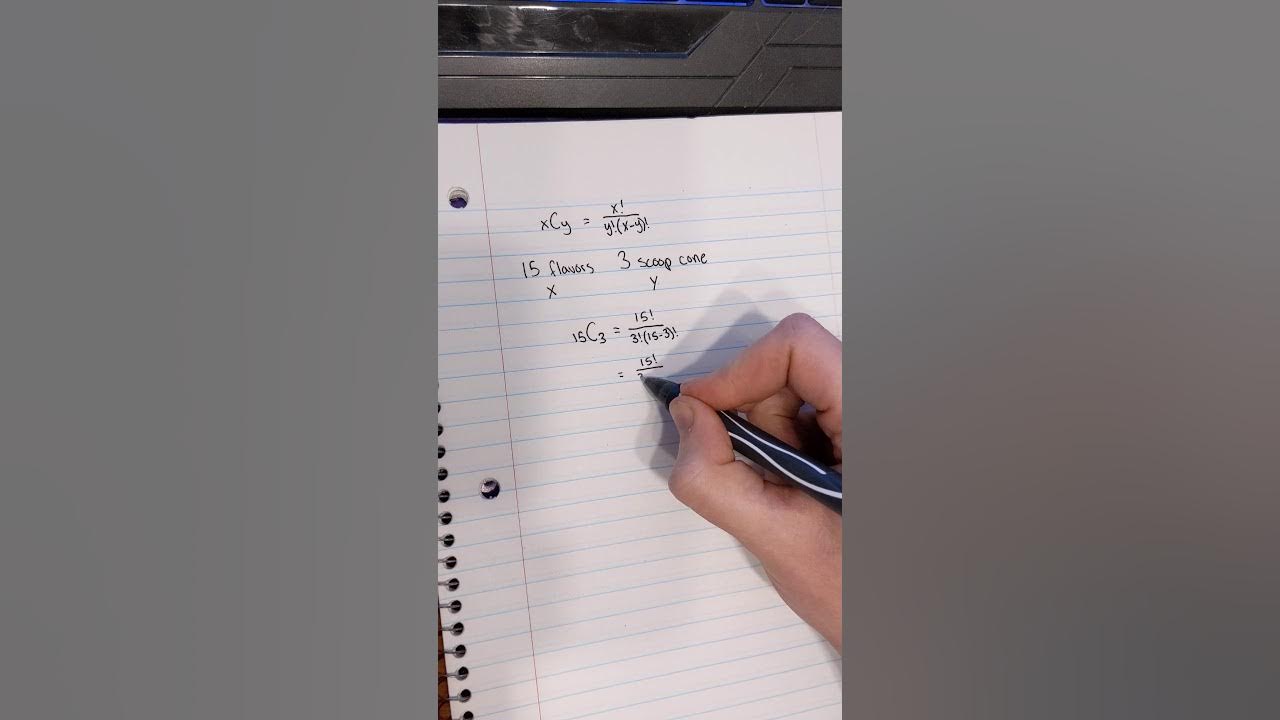 xCy = x!/y!(x-y)!
15 flavors 3 scoop cone
x y
15C3 = 15!/3!(15-3)!
= 15!/